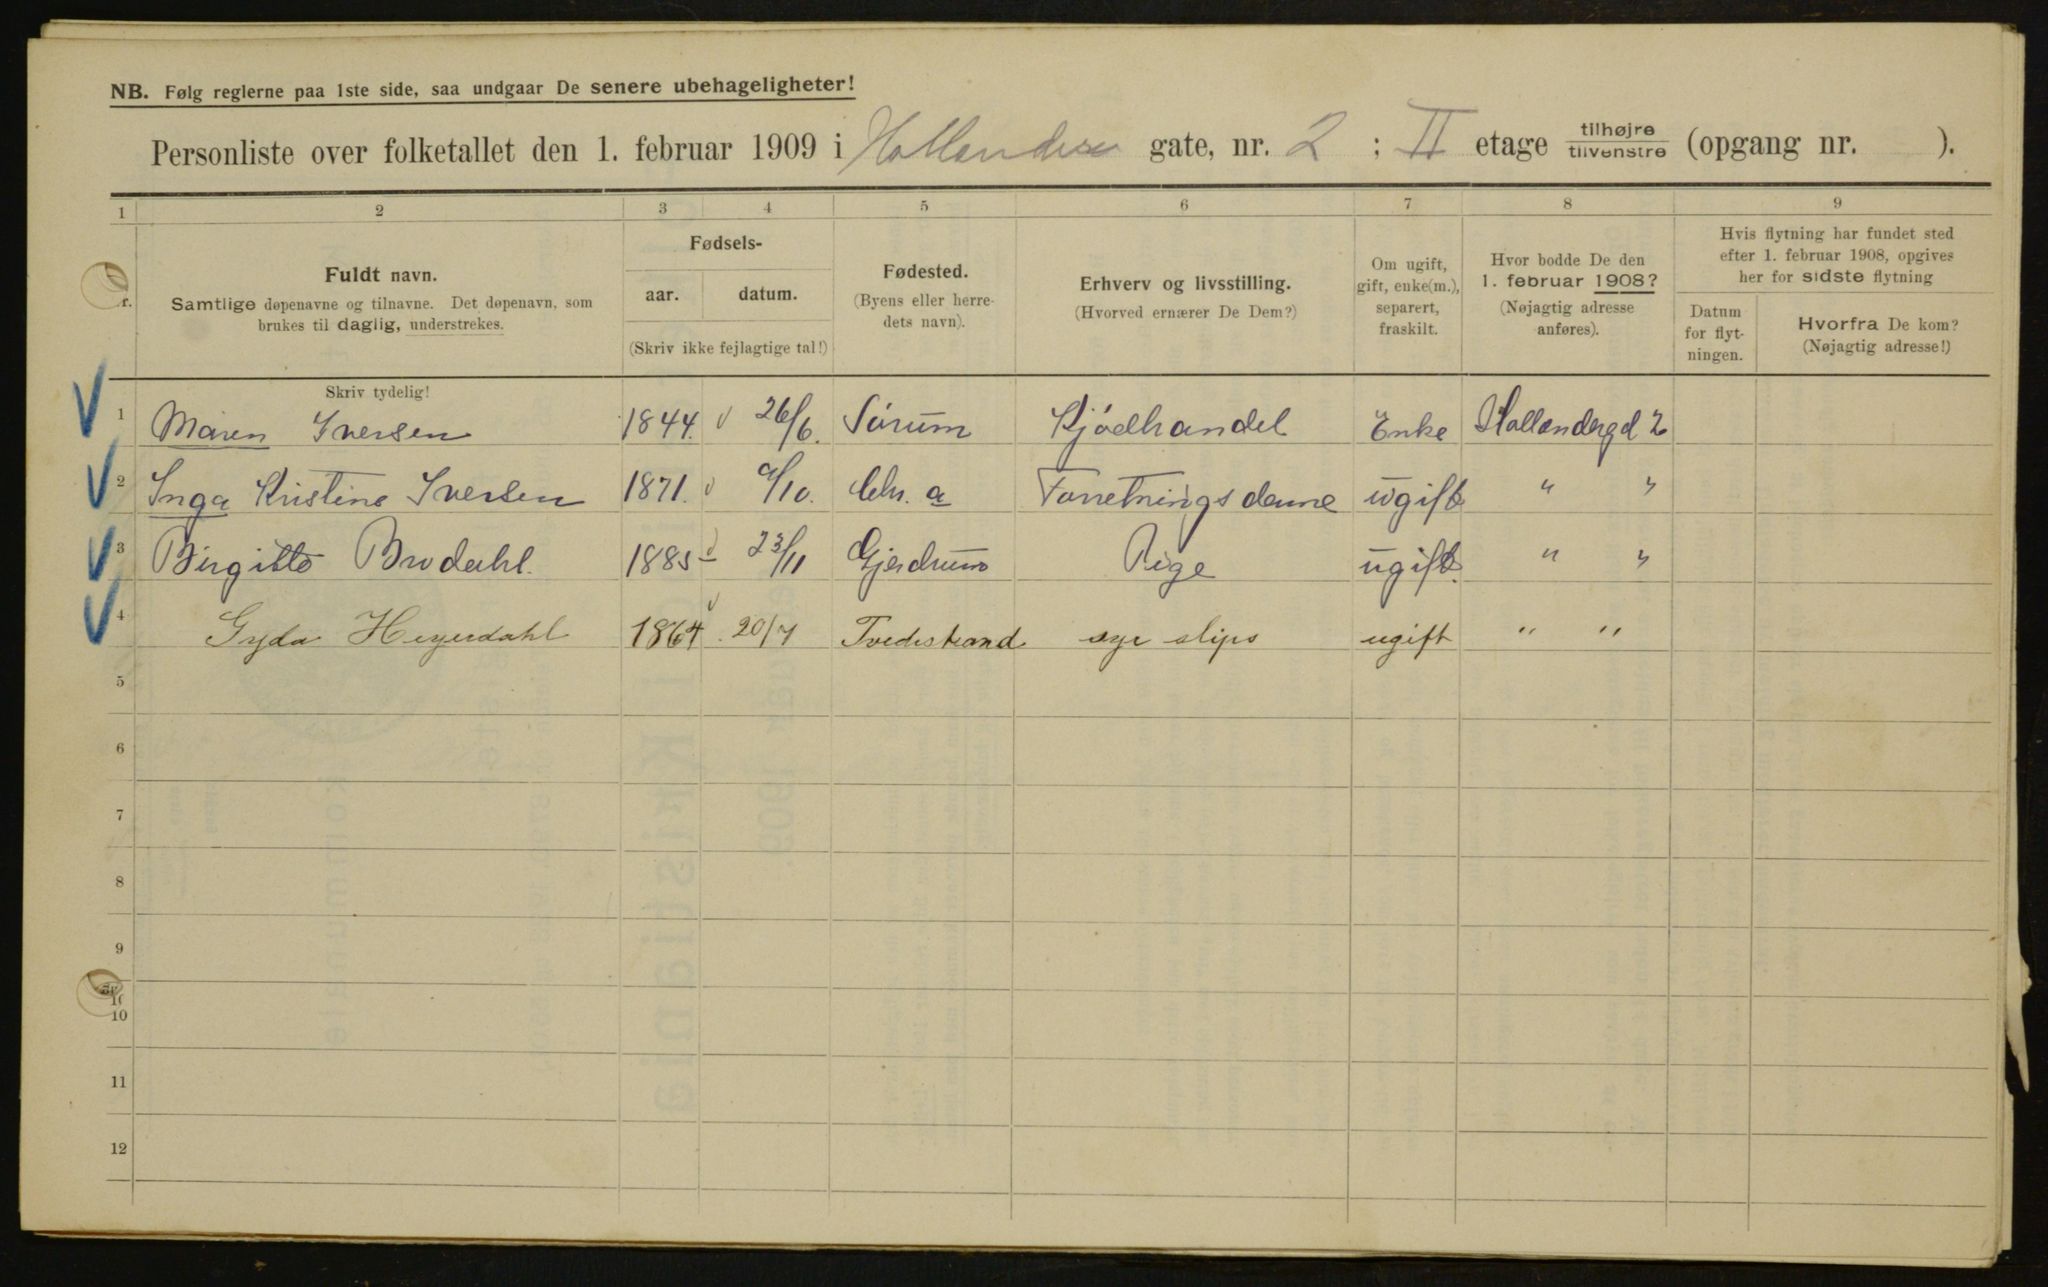 NB. Følg reglerne paa 1ste side, saa undgaar De senere ubehageligheter!
Personliste over folketallet den 1. februar 1909 i Hollender gate, nr. 2 ; II etage tilhøjre tilvenstre (opgang nr. ).
1 2 3 4 5 6 7 8 9
r.
Fuldt navn.
Samtlige døpenavne og tilnavne. Det døpenavn, som
brukes til daglig, understrekes.
Fødsels-
aar. datum.
(Skriv ikke fejlagtige tal!)
Fødested.
(Byens eller herre-
dets navn).
Erhverv og livsstilling.
(Hvorved ernærer De Dem?)
Om ugift,
gift, enke(m.),
separert,
fraskilt.
Hvor bodde De den
1. februar 1908?
(Nøjagtig adresse
anføres).
Hvis flytning har fundet sted
efter 1. februar 1908, opgives
her for sidste flytning
Datum
for flyt-
ningen.
Hvorfra De kom?
(Nøjagtig adresse!)
Skriv tydelig!
1 Maren Iversen 1844. 26/6. Sørum Kjødhandel Enke Hollendergd 2
2 Inga Kristine Iversen 1871. 9/10. Chr. a Forretningsdame ugift " "
3 Birgitte Brodahl. 1885 23/11 Gjerdrum Pige ugift. " "
4 Gyda Heyerdahl 1864. 20/7 Tvedestrand syr slips ugift " "
5
6
7
8
9
10
11
12